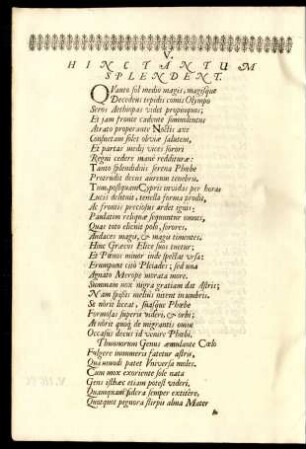 V.
HINC TANTUM
SPLENDENT.
QUanto sol medio magis, magisque
Decedens tepidis comis Olympo
Seros Aethiopas videt propinquus;
Et jam fronte cadente
Atrato properante Noctis axe
Consuetam solet obviae salutem,
Et partas medij vices sorori
Regni cedere mane redditurae:
Tanto splendidius serena Phoebe
Protrudit decus aureum tenebris,
Tum, postquam Cypris invidis per horas
Lucis delituit, tenella forma prodit,
Ac frontis preciosus ardet ignis;
Paulatim reliquae sequuntur omnes,
Quas toto elicuit polo, sorores.
Audaces magis, & magis timentes.
Hinc Graecos Elice suos tuetur;
Et Poenos minor inde spectat ursa:
Erumpunt citò Pleiades; sed una
Agnato Merope intrata more.
Summam nox nigra gratiam dat Astris;
Nam spissis melius nitent in umbris.
Se noris liceat, suasque Phoebe
Formosas superis videri, & orbi;
At noris quoque de migrantis omne
Occasus decus id venire Phoebi.
Thunnorum Genus aemulante Coelo
Fulgere innumeris fatetur astris,
Qua mundi patet Vniversa moles.
Cum mox exoriente sole nata
Gens isthaec etiam potest videri,
Quamquam sidera semper extitere,
Quotquot pignora stirpis alma Mater